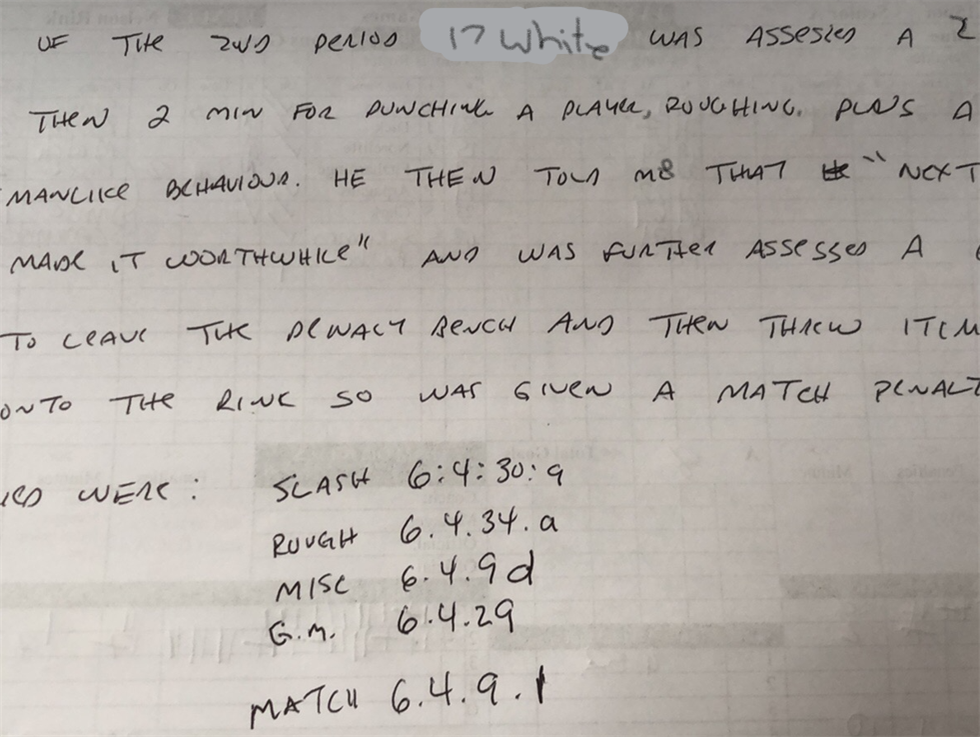 OF THE 2ND PERIOD 17 White WAS ASSESSED A 2
THEN 2 MIN FOR PUNCHING A PLAYER, ROUGHING. PLUS A
MANLIKE BEHAVIOUR. HE THEN TOLD ME THAT "NEXT
MADE IT WORTHWHILE" AND WAS FURTHER ASSESSED A
TO LEAVE THE PENALTY BENCH AND THEN THREW ITEM
ONTO THE RINK SO WAS GIVEN A MATCH PENALT
WERE: SLASH 6:4:30:a
ROUGH 6.4.34.a
MISC 6.4.9 d
G.M. 6.4.29
MATCH 6.4.9.1